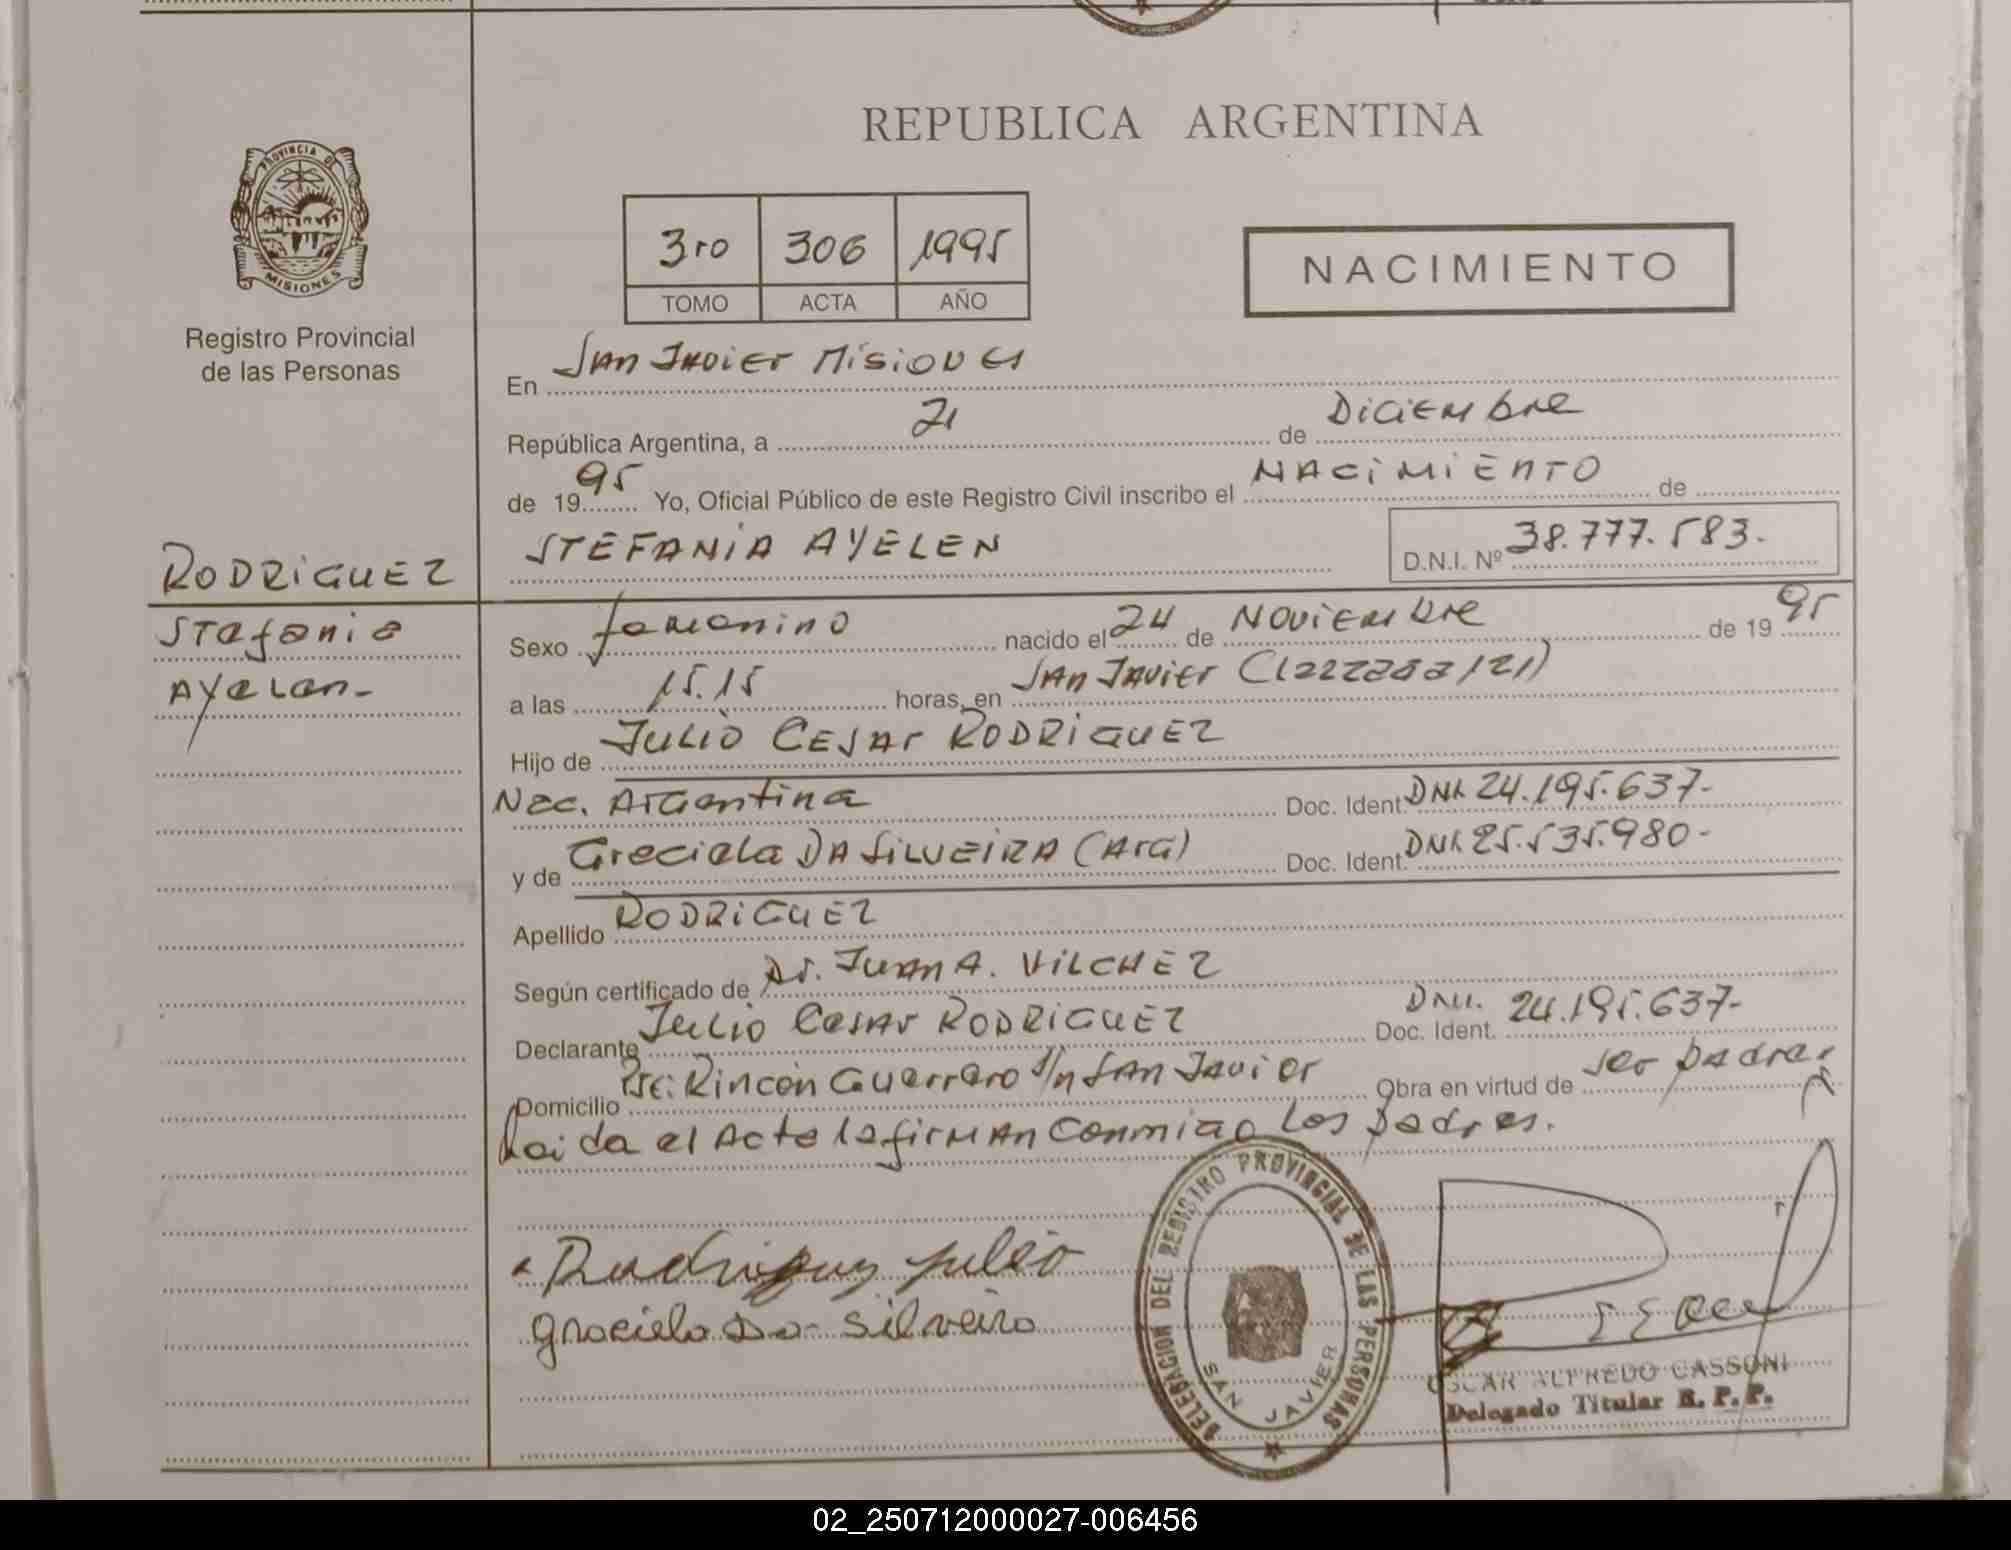 REPUBLICA ARGENTINA
PROVINCIA DE
MISIONES
Registro Provincial
de las Personas
3ro 306 1995
TOMO ACTA AÑO
NACIMIENTO
En San Javier Misiones
República Argentina, a 21 de Diciembre
de 1995 Yo, Oficial Público de este Registro Civil inscribo el NACIMIENTO de
STEFANIA AYELEN D.N.I. Nº 38.777.583.
RODRIGUEZ
Stefania
Ayelen-
Sexo femenino nacido el 24 de Noviembre de 1995
a las 15.15 horas, en San Javier
Hijo de Julio Cesar RODRIGUEZ
Nac. Argentina Doc. Ident. DNI. 24.195.637-
y de Graciela DA SILVEIRA (Arg) Doc. Ident. DNI. 25.535.980-
Apellido RODRIGUEZ
Según certificado de Dr. Juan A. VILCHEZ
Declarante Julio Cesar RODRIGUEZ Doc. Ident. DNI. 24.195.637-
Domicilio Rincón Guerrero s/n San Javier Obra en virtud de ser padre.
Leida el Acta la firman conmigo los padres.
Rodriguez Julio
graciela Da Silveira
DELEGACION DEL REGISTRO PROVINCIAL DE LAS PERSONAS
SAN JAVIER
OSCAR ALFREDO CASSONI
Delegado Titular R. P. P.
02_250712000027-006456